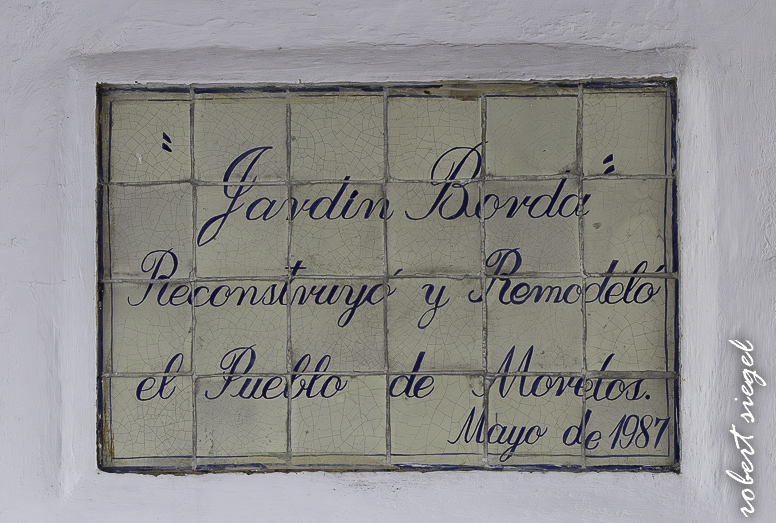 "Jardin Borda"
Reconstruyó y Remodeló
el Pueblo de Morelos.
Mayo de 1987
robert siegel